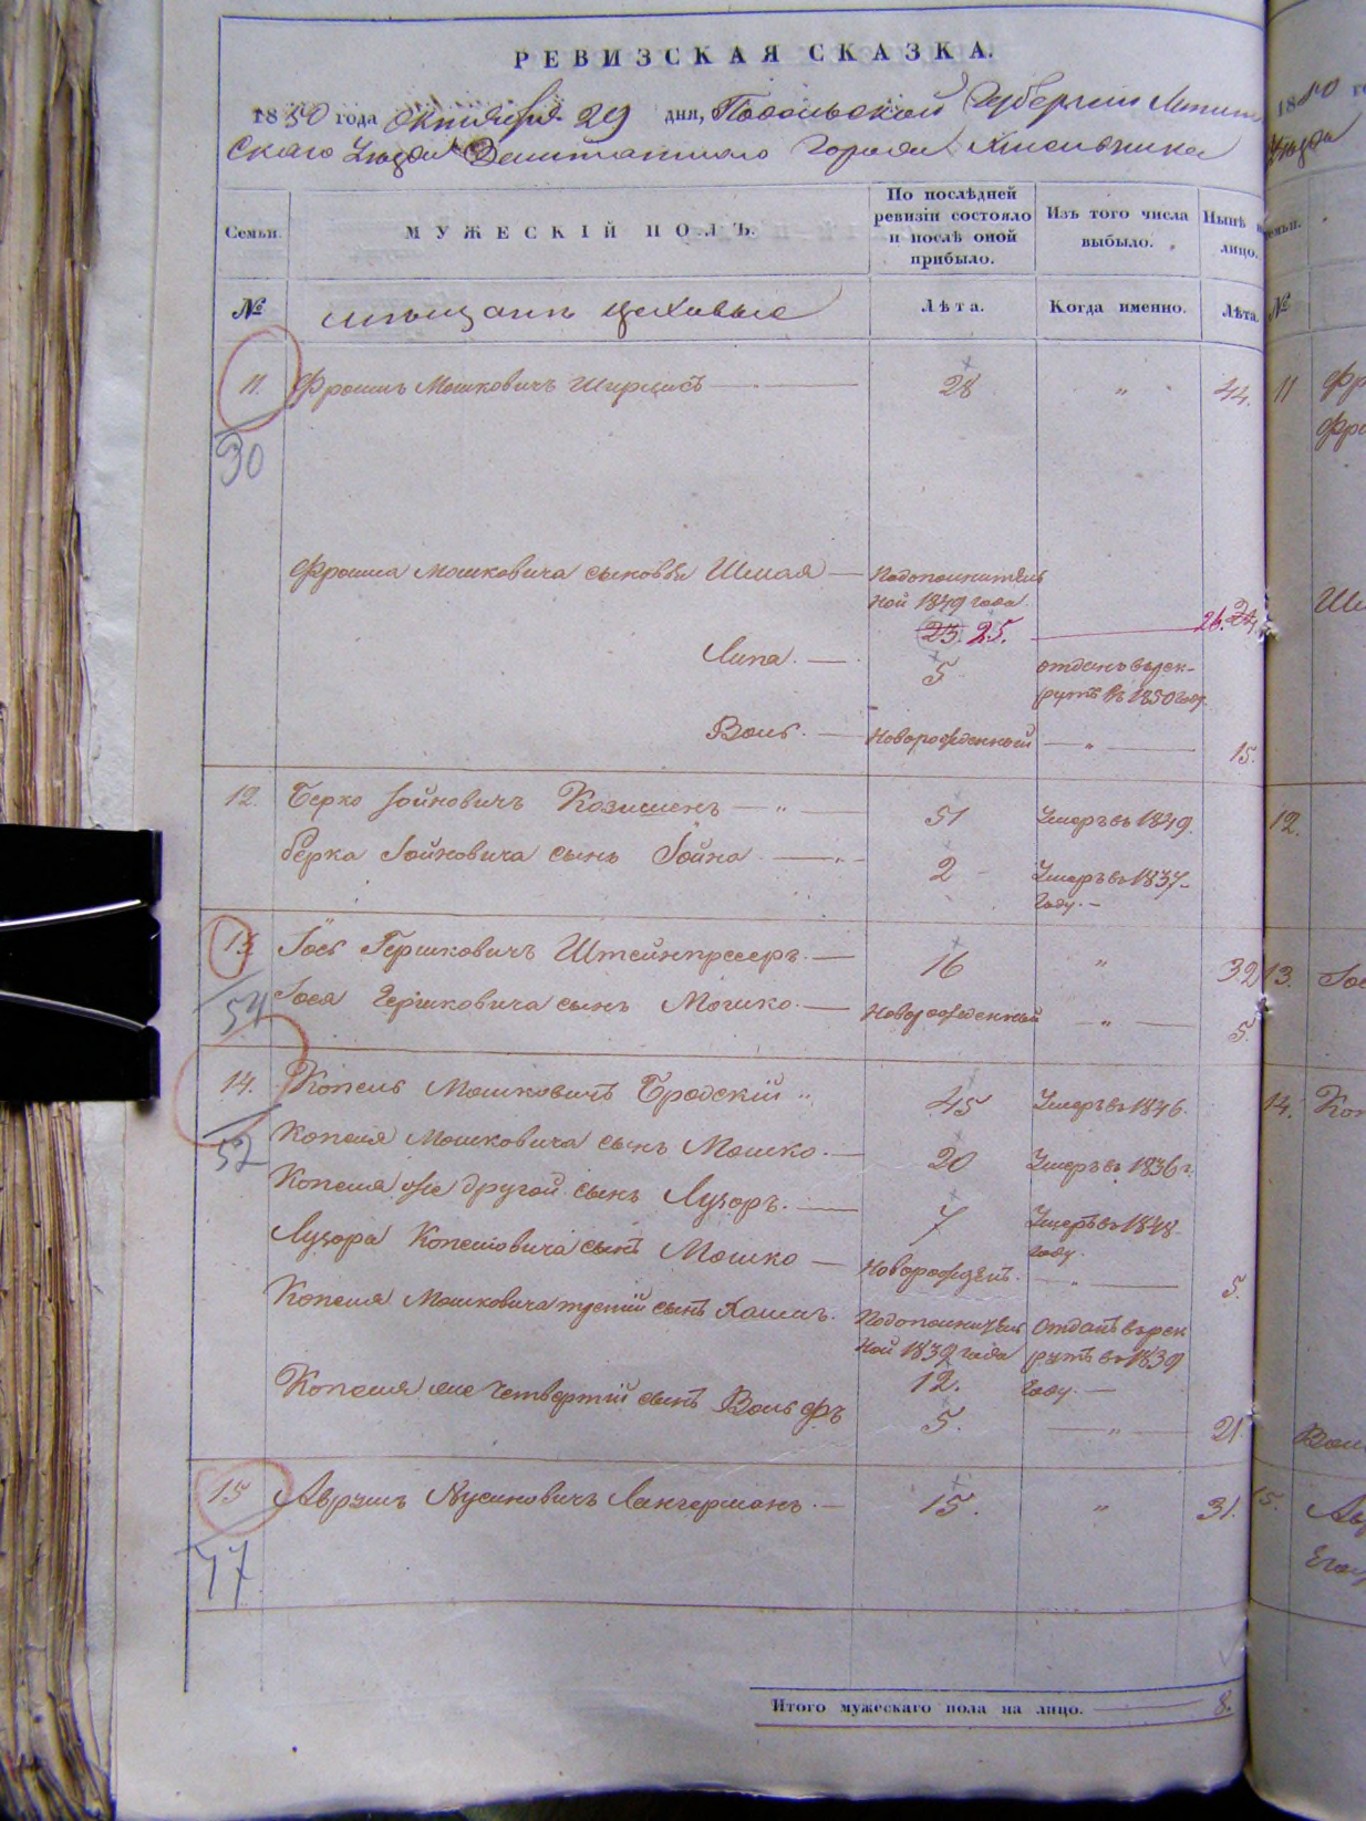 РЕВИЗСКАЯ СКАЗКА.
1850 года Октября 29 дня, Подольской Губернии Летин
скаго Уезда Заштатного Города Хмельника
Семьи. МУЖЕСКІЙ ПОЛЪ. По послѣдней ревизіи состояло и послѣ оной прибыло. Изъ того числа выбыло. Нынѣ на лицо.
№ мещане цеховые Лѣта. Когда именно. Лѣта.
11. Фроимъ Мошковичъ 28 „ 44.
30
Фроима Мошковича сыновья Шмая — Подополнитель
ной 1849 года.
23. 25. 26. 24.
Липа. — 5 отданъ въ рек-
рутъ въ 1850 году.
Воль. — Новорожденный — „ — 15.
12. Берко Іойновичъ — „ — 51 Умеръ въ 1849.
Берка Іойновича сынъ Іойна — „ — 2 Умеръ въ 1837-
году. —
13 Іось Гершковичъ Штейнпресеръ. — 16 „ 32
54 Іося Гершковича сынъ Мошко. — Новорожденный — „ — 5.
14. Копель Мошковичъ Бродскій „ 45 Умеръ въ 1846.
52 Копеля Мошковича сынъ Мошко. — 20 Умеръ въ 1836 г.
Копеля же другой сынъ Лузоръ. — 7 Умеръ въ 1848
году.
Лузора Копелёвича сынъ Мошко — Новорожденъ. — „ — 5.
Копеля Мошковича третій сынъ Хаимъ. Подополнитель
ной 1839 года
12. Отданъ в рек
рутъ въ 1839
году. —
Копеля же четвертій сынъ Вольфъ 5. — „ — 21.
15 Аврумъ Нусиновичъ Лангерманъ. — 15. „ 31.
77
Итого мужескаго пола на лицо. — 8.